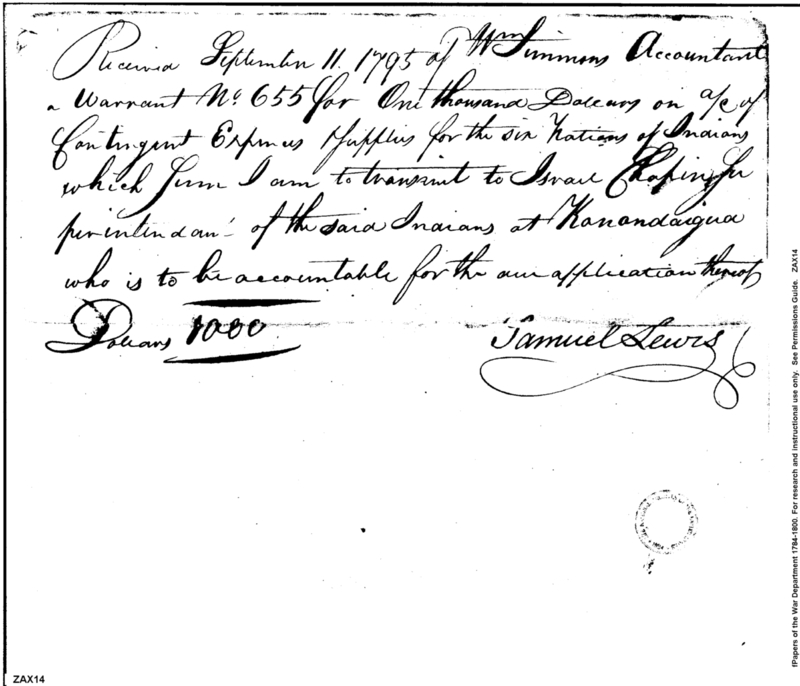 Received September 11. 1795 of Wm Simmons Accountant
a Warrant No. 655 for One thousand Dollars on a/c of
Contingent Expences Supplies for the six Nations of Indians
which Sum I am to transmit to Israel Chapin Su
perintendant of the said Indians at Kanandaigua
who is to be accountable for the due application thereof
Dollars 1000
Samuel Lewis
ZAX14
Papers of the War Department 1784-1800. For research and instructional use only. See Permissions Guide. ZAX14